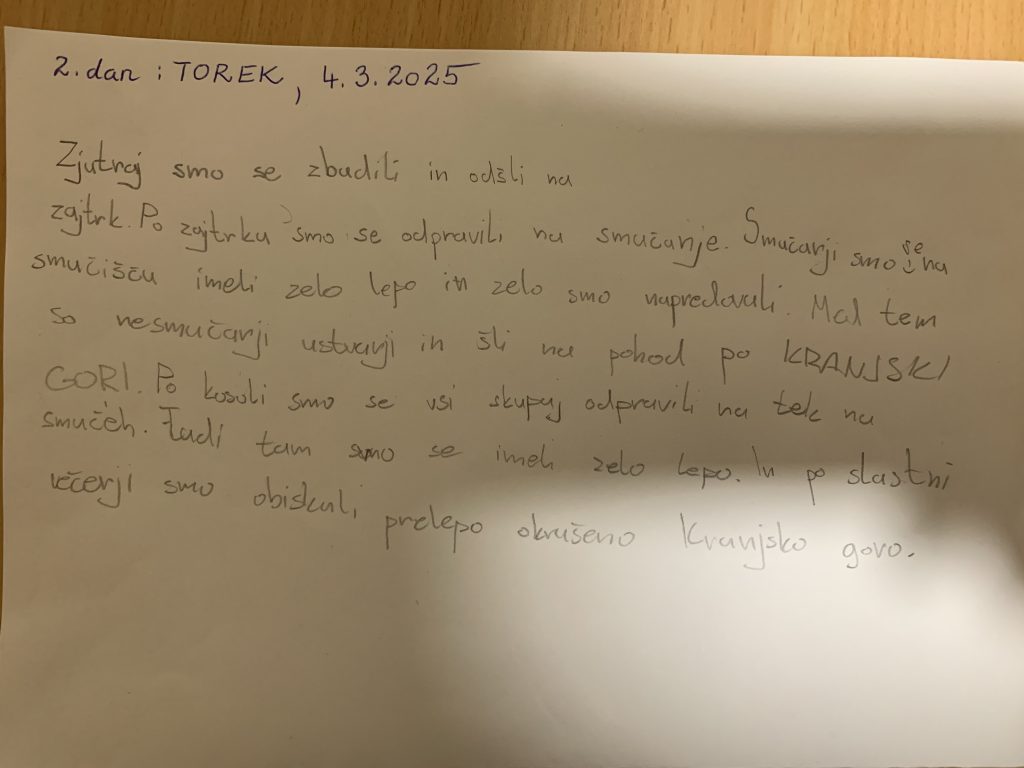 2. dan : TOREK, 4.3.2025
Zjutraj smo se zbudili in odšli na
zajtrk. Po zajtrku smo se odpravili na smučanje. Smučarji smo se na
smučišču imeli zelo lepo in zelo smo napredovali. Mal tem
so nesmučarji ustvarji in šli na pohod po KRANJSKI
GORI. Po kosili smo se vsi skupaj odpravili na tek na
smučeh. Tudi tam smo se imeli zelo lepo. In po slastni
večerji smo obiskali, prelepo okrašeno Kranjsko goro.